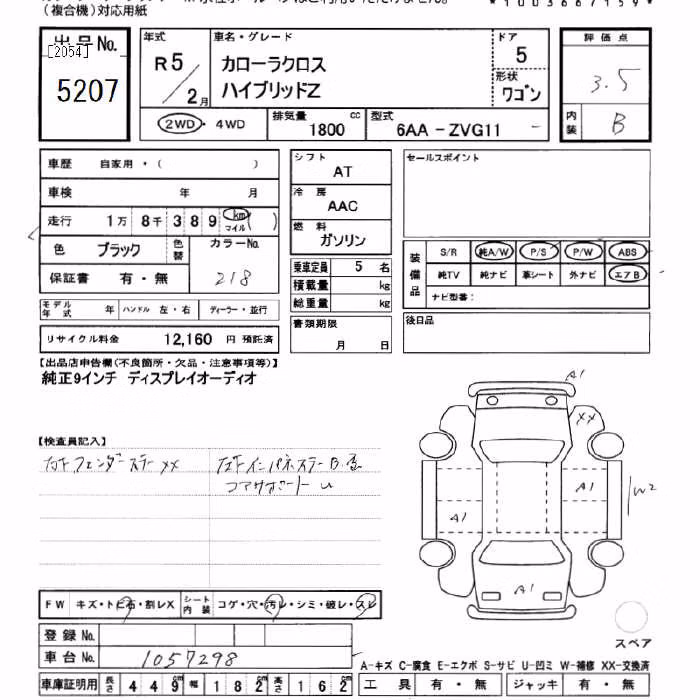 (複合機)対応用紙
*1003667159*
出品No.
[2054]
5207
年式
R5/2月
車名・グレード
カローラクロス
ハイブリッドZ
ドア
5
形状
ワゴン
評価点
3.5
内装
B
2WD・4WD
排気量
1800 cc
型式
6AA-ZVG11
車歴 自家用・( )
車検 年 月
走行 1万 8千 3 8 9 km マイル ( )
色 ブラック
色替
カラーNo.
218
保証書 有・無
モデル年式 年 ハンドル 左・右 ディーラー・並行
リサイクル料金 12,160 円 預託済
シフト
AT
冷房
AAC
燃料
ガソリン
乗車定員 5 名
積載量 kg
総重量 kg
書類期限
月 日
セールスポイント
装備品
S/R 純A/W P/S P/W ABS
純TV 純ナビ 革シート 外ナビ エアB
ナビ型番:
後日品
【出品店申告欄(不良箇所・欠品・注意事項等)】
純正9インチ ディスプレイオーディオ
【検査員記入】
フェンダーステー XX
コアサポート U
A1
XX
A1
W2
A1
A1
スペア
FW キズ・トビ石・割レX
シート内装 コゲ・穴・汚レ・シミ・破レ・スレ
登録No.
車台No. 1057298
車庫証明用 長さ 449cm 幅 182cm 高さ 162cm
A-キズ C-腐食 E-エクボ S-サビ U-凹ミ W-補修 XX-交換済
工具 有・無 ジャッキ 有・無